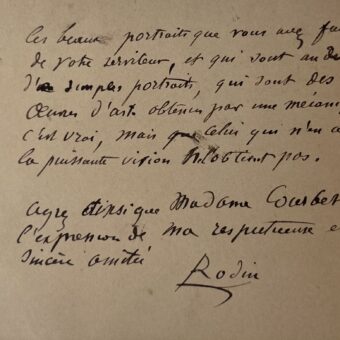 Ces beaux portraits que vous avez fai
de votre serviteur, et qui sont au De
d'a simples portraits, qui sont des
Œuvres d'arts obtenus par une mécani
c'est vrai, mais que celui qui n'en a
la puissante vision N'obtient pas.
agréez ainsi que Madame Courbet
l'expression de ma respectueuse e
sincère amitié
Rodin